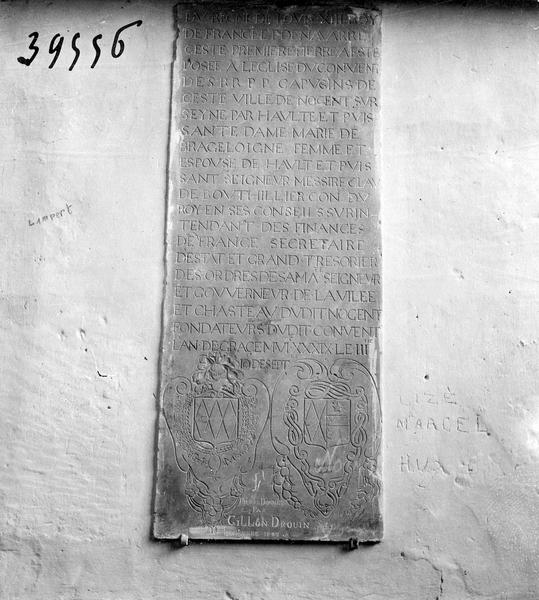 39556
DV REGNE DE LOVIS XIII ROY
DE FRANCE ET DE NAVARRE
CESTE PREMIERE PIERRE A ESTE
POSEE A LEGLISE DV CONVENT
DES R.R.P.P. CAPVSINS DE
CESTE VILLE DE NOGENT SVR
SEYNE PAR HAVLTE ET PVIS
SANTE DAME MARIE DE
BRAGELOIGNE FEMME ET
ESPOVSE DE HAVLT ET PVIS
SANT SEIGNEVR MESSIRE CLAV
DE BOVTHILLIER CON DV
ROY EN SES CONSEILS SVRIN
TENDANT DES FINANCES
DE FRANCE SECRETAIRE
DESTAT ET GRAND TRESORIER
DES ORDRES DE SA MA SEIGNEVR
ET GOVVERNEVR DE LA VILLE
ET CHASTEAV DVDIT NOGENT
FONDATEVRS DVDIT CONVENT
LAN DE GRACE MVI XXXIX LE III
D SEPT
PAR
GILLON DROUIN
Limpert
LIZE
MARCEL